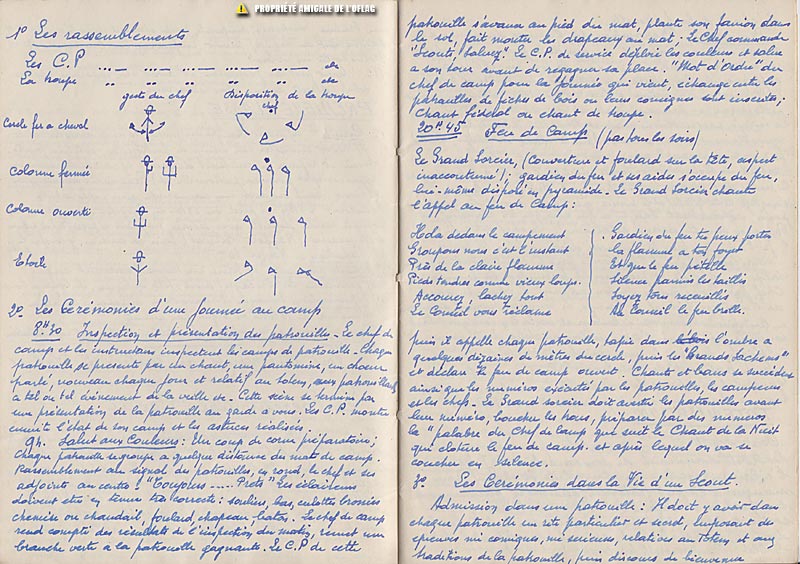 PROPRIÉTÉ AMICALE DE L'OFLAG
1° Les rassemblements
Les C.P
La troupe
geste du chef Disposition de la troupe
chef
Cercle fer a cheval
Colonne fermée
Colonne ouverte
Etoile
2° Les Cérémonies d'une journée au camp
8h30 Inspection et présentation des patrouilles. Le chef de
camp et les instructeurs inspectent les camps de patrouille. Chaque
patrouille se présente par un chant, une pantomime, un choeur
parlé, nouveau chaque jour et relatif au totem,
a tel ou tel évènement de la veille etc. Cette scène se termine par
une présentation de la patrouille au garde a vous. Les C.P. montre
ensuite l'état de son camp et les astuces réalisées.
9h. Salut aux Couleurs: Un coup de corne préparatoire;
Chaque patrouille se groupe a quelque distance du mat de camp.
Rassemblement au signal des patrouilles, en rond, le chef et ses
adjoints au centre! "Toujours ..... Prêts" Les éclaireurs
doivent être en tenue très correcte: souliers, bas, culottes
chemise ou chandail, foulard chapeau, baton. Le chef de camp
rend compte des résultats de l'inspection du matin, remet une
branche verte a la patrouille gagnante. Le C.P de cette
patrouille s'avance au pied du mat, plante son fanion dans
le sol, fait monter les drapeaux au mat. Le Chef commande
"Scouts, saluez". Le C.P. de service déploie les couleurs et salue
a son tour avant de regagner sa place. "Mot d'Ordre" du
chef de camp pour la journée qui vient, échange entre les
patrouilles de fiches de bois ou leurs consignes sont inscrites;
Chant fédéral ou chant de troupe.
20h45 Feu de Camp (pas tous les soirs)
Le Grand Sorcier, (couverture et foulard sur la tête, aspect
inaccoutumé); gardien du feu et ses aides s'occupe du feu,
lui-même disposé en pyramide. Le Grand Sorcier chante
l'appel au feu de Camp:
Hola dedans le campement
Groupons nous c'est l'instant
Près de la claire flamme
Pieds tendres comme vieux loups.
Accourez, lachez tout
Le Conseil vous réclame
Gardien du feu tu peux porter
la flamme a ton foyer
Et que le feu pétille
Silence parmis les taillis
Soyez tous recueillis
Au Conseil le feu brille.
puis il appelle chaque patrouille, tapie dans l'ombre a
quelques dizaines de mètres du cercle, puis les "Grands Sachems"
et déclare le feu de camp ouvert. Chants et bans se succèdent
ainsi que les numéros exécutés par les patrouilles, les campeurs
et les chefs. Le Grand sorcier doit avertir les patrouilles avant
leur numéro, boucher les trous, préparer par des numeros
la "palabre du Chef de Camp qui suit le Chant de la Nuit
qui cloture le feu de camp. et après lequel on va se
coucher en silence.
3° Les Cérémonies dans la Vie d'un Scout.
Admission dans une patrouille: Il doit y avoir dans
chaque patrouille un rite particulier et secret, imposant des
épreuves mi comiques, mi serieuse, relatives au totem et aux
traditions de la patrouille, puis discours de bienvenue